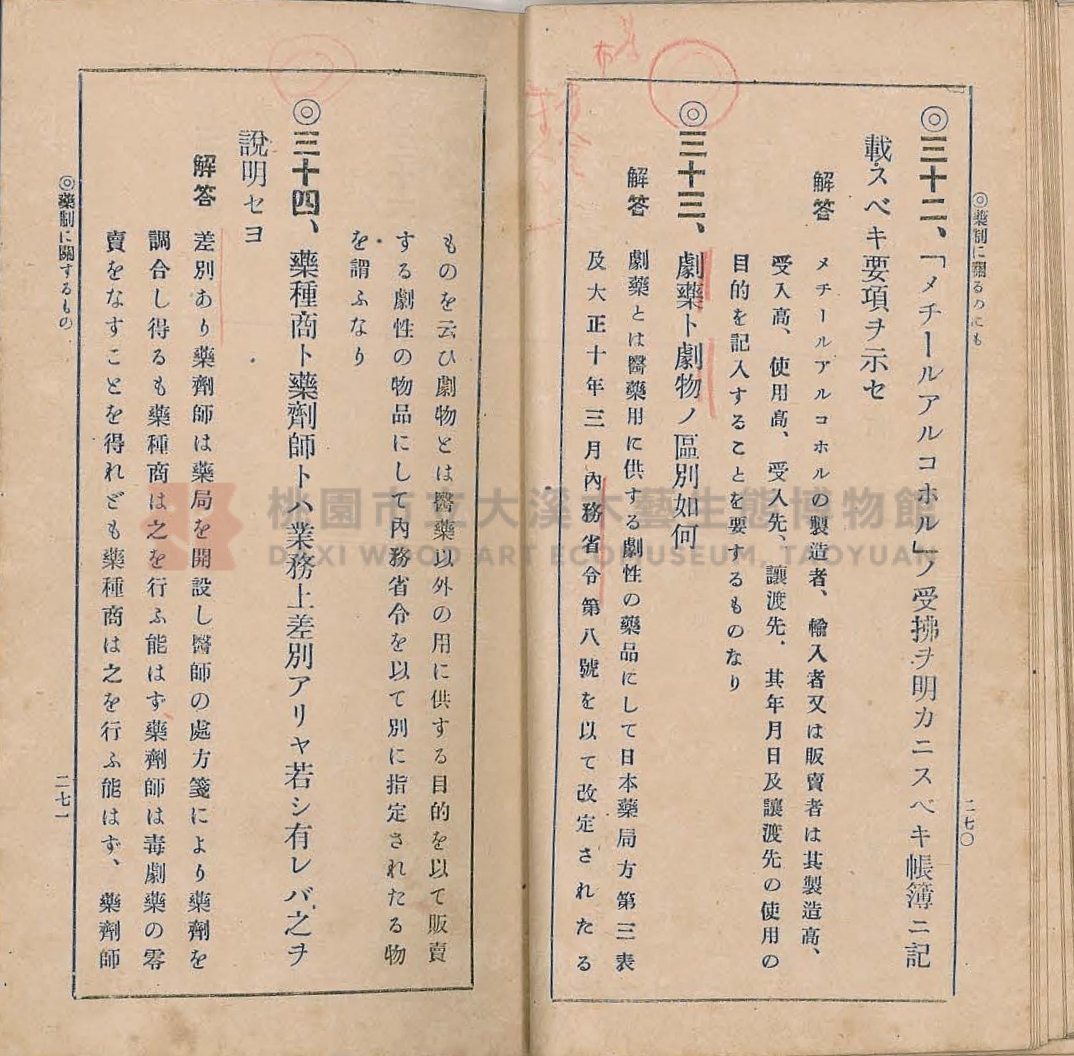 ◎藥制に關るのにも
二七〇
◎三十二、「メチールアルコホル」ノ受拂ヲ明カニスベキ帳簿ニ記
載スベキ要項ヲ示セ
解答 メチールアルコホルの製造者、輸入者又は販賣者は其製造高、
受入高、使用高、受入先、讓渡先、其年月日及讓渡先の使用の
目的を記入することを要するものなり
◎三十三、劇藥ト劇物ノ區別如何
解答 劇藥とは醫藥用に供する劇性の藥品にして日本藥局方第三表
及大正十年三月內務省令第八號を以て改定されたる
ものを云ひ劇物とは醫藥以外の用に供する目的を以て販賣
する劇性の物品にして內務省令を以て別に指定されたる物
を謂ふなり
◎三十四、藥種商ト藥劑師トハ業務上差別アリヤ若シ有レバ之ヲ
說明セヨ
解答 差別あり藥劑師は藥局を開設し醫師の處方箋により藥劑を
調合し得るも藥種商は之を行ふ能はず藥劑師は毒劇藥の零
賣をなすことを得れども藥種商は之を行ふ能はず、藥劑師
◎藥制に關するもの
二七一
桃園市立大溪木藝生態博物館
DAXI WOOD ART ECOMUSEUM, TAOYUAN